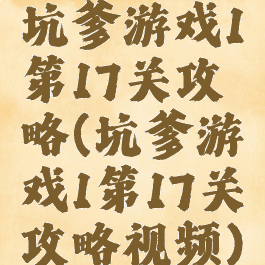 坑爹游戏1
第17关攻
略(坑爹游
戏1第17关
攻略视频)